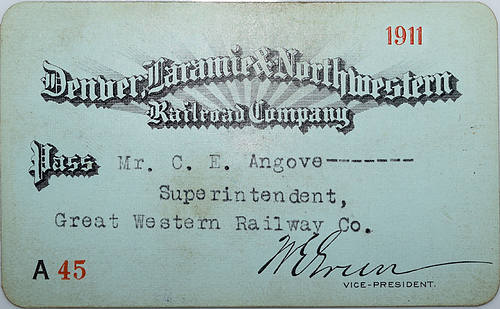 1911
Denver, Laramie & Northwestern
Railroad Company
Pass Mr. C. E. Angove----------
Superintendent,
Great Western Railway Co.
W E Green
A 45
VICE-PRESIDENT.